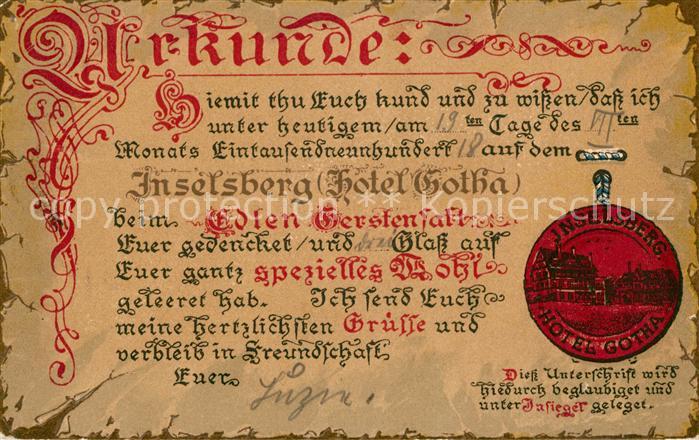 Urkunde:
Hiemit thu Euch kund und zu wißen/daß ich
unter heutigem/am 19ten Tage des VIIten
Monats Eintausendneunhundert 18 auf dem
Inselsberg (Hotel Gotha)
copy protection ** Kopierschutz
beim Edlen Gerstensaft
Euer gedencket/und drei Glaß auf
Euer gantz spezielles Wohl
geleeret hab. Ich send Euch
meine hertzlichsten Grüsse und
verbleib in Freundschaft
Euer
Luzie.
INSELSBERG
HOTEL GOTHA
Dieß Unterschrift wird
hiedurch beglaubiget und
unter Insiegel geleget.